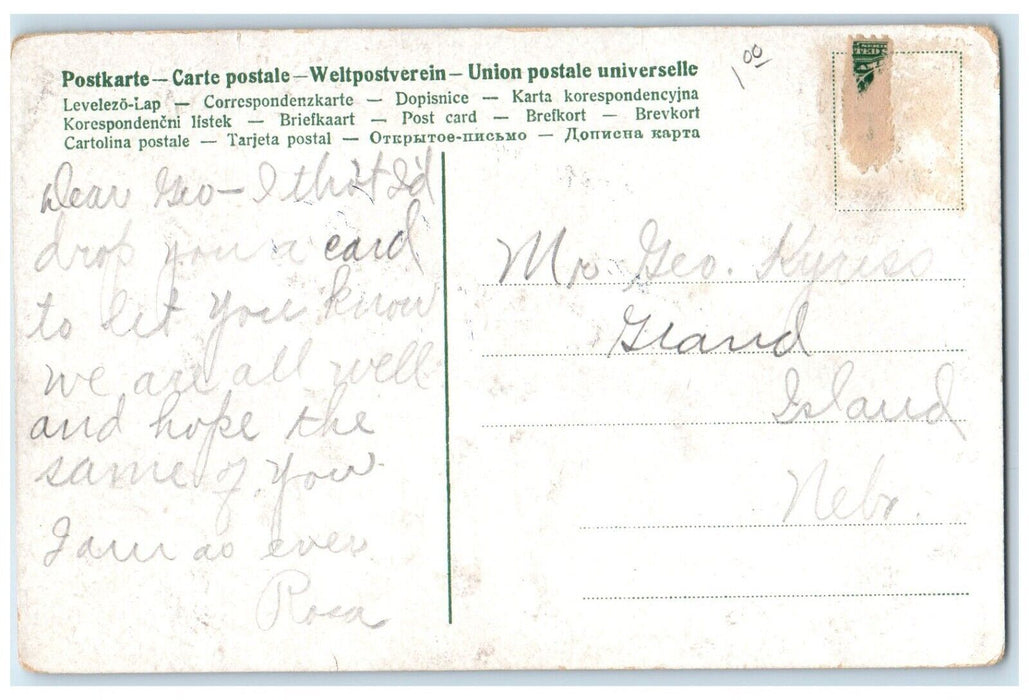 Postkarte — Carte postale — Weltpostverein — Union postale universelle
Levelező-Lap — Correspondenzkarte — Dopisnice — Karta korespondencyjna
Korespondenční listek — Briefkaart — Post card — Brefkort — Brevkort
Cartolina postale — Tarjeta postal — Открытое-письмо — Дописна карта
1 00
Dear Geo — I that I'd
drop you a card
to let you know
we are all well
and hope the
same of you.
I am as ever
Rosa
Mr. Geo. Kyriss
Grand
Island
Nebr.